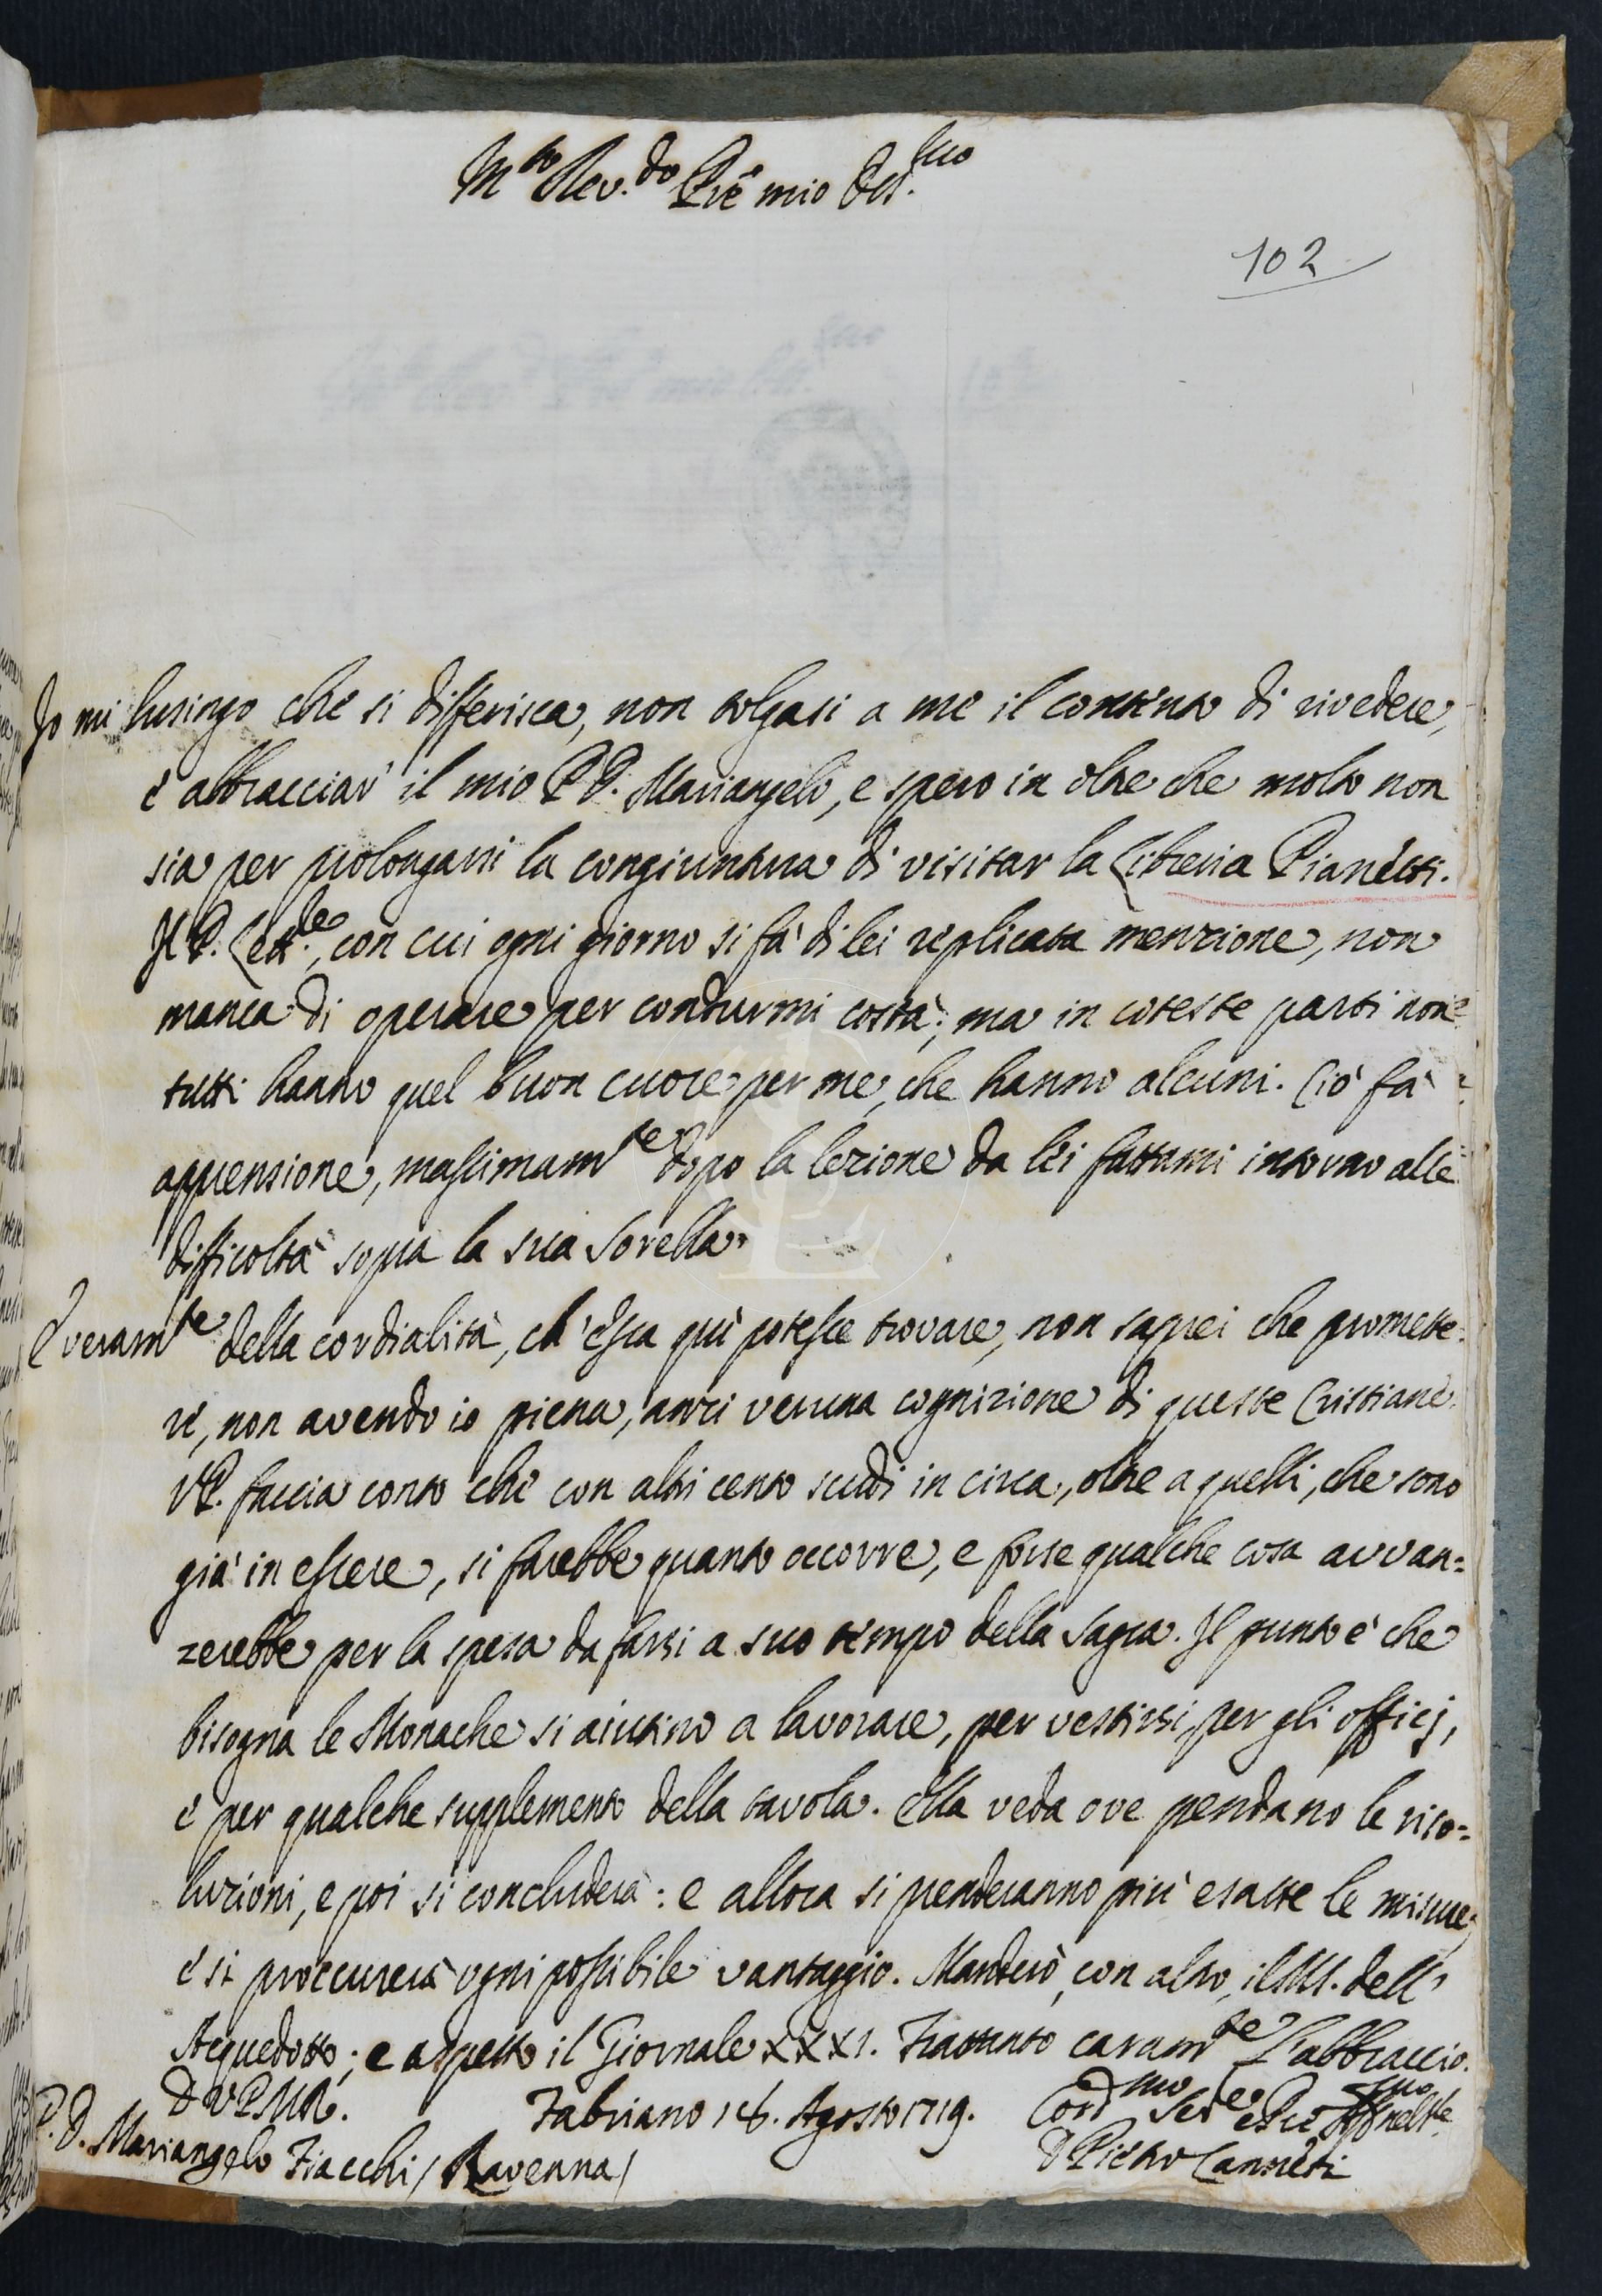 M.to Rev.do Pre mio Oss.mo
102
Io mi lusingo che si differisca, non tolgasi a me il contento di rivedere,
e abbracciar il mio P. D. Mariangelo, e spero in oltre che molto non
sia per prolongarsi la congiuntura di visitar la Libreria Pianetti.
Il P. Lett.re, con cui ogni giorno si fà di lei replicata menzione, non
manca di operare per condurmi costà; ma in coteste parti non
tutti hanno quel buon cuore per me, che hanno alcuni. Ciò fà
apprensione, massimam.te dopo la lezione da lei fattami intorno alle
difficoltà sopra la sua Sorella.
E veram.te della cordialità, ch'Essa quì potesse trovare, non saprei che promette-
re, non avendo io piena, anzi veruna cognizione di queste Cristiane.
V.P. faccia conto che con altri cento scudi in circa, oltre a quelli, che sono
già in essere, si farebbe quanto occorre, e forse qualche cosa avvan=
zerebbe per la spesa da farsi a suo tempo della Sagra. Il punto è che
bisogna le Monache si aiutino a lavorare, per vestirsi, per gli officj,
e per qualche supplemento della tavola. Ella veda ove pendano le riso=
luzioni, e poi si concluderà: e allora si prenderanno più esatte le misure,
e si proccurerà ogni possibile vantaggio. Manderò, con altro, il MS. dell'
Acquedotto; e aspetto il Giornale XXXI. Frattanto caram.te L'abbraccio.
D V.P.M.R.
Fabriano 16. Agosto 1719.
P. D. Mariangelo Fiacchi / Ravenna /
D Pietro Canneti